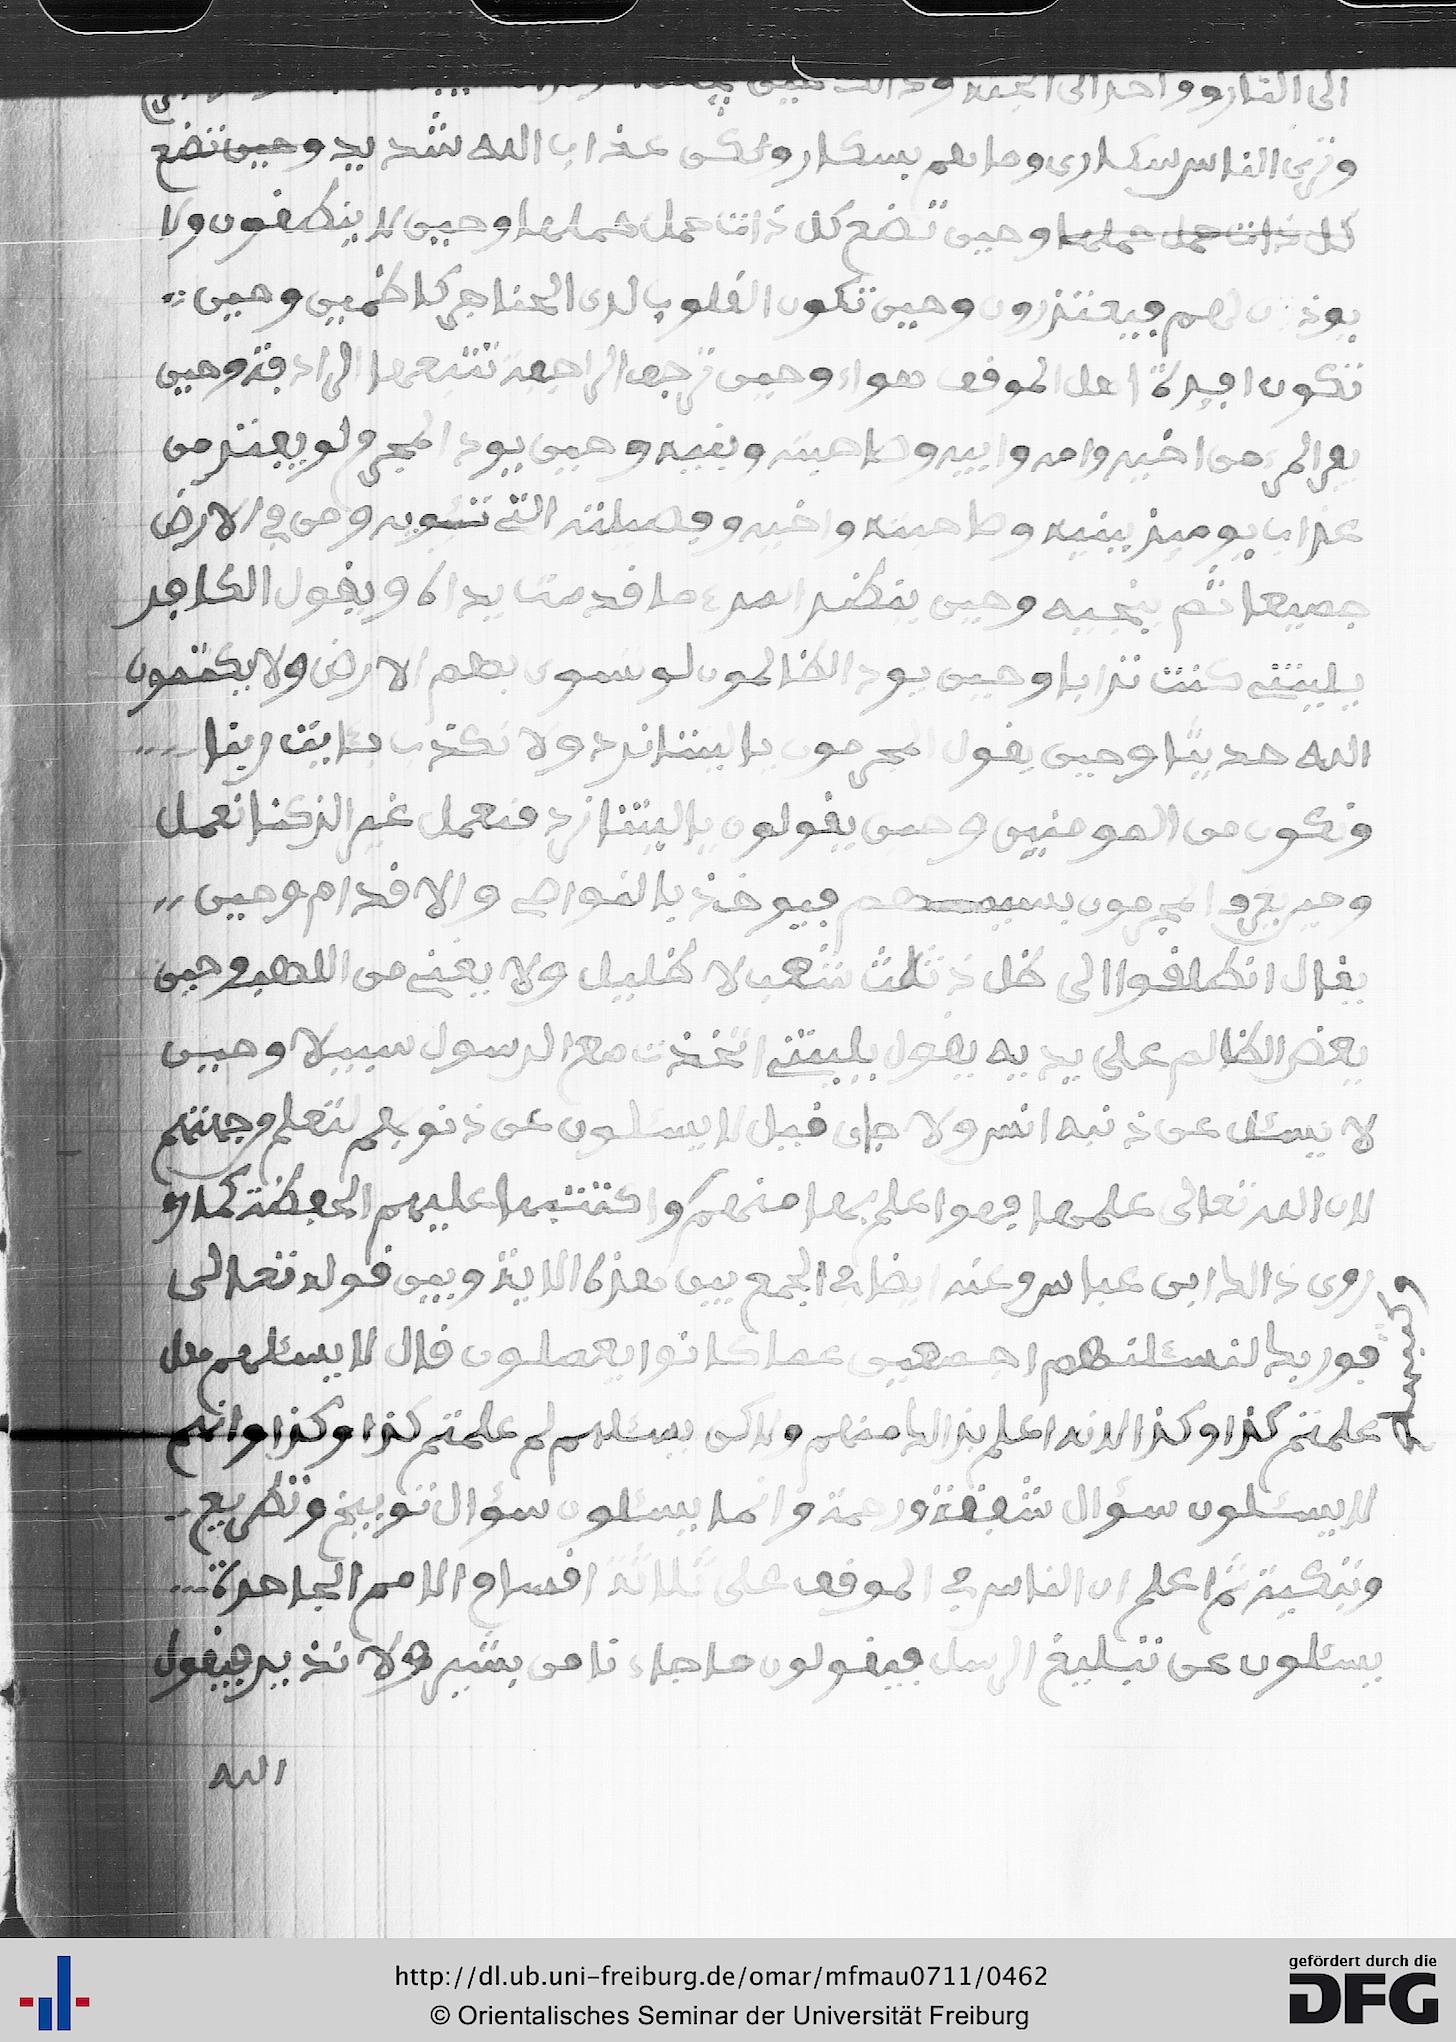 الى النار وواحد الى الجنة وذالك حين
وترى الناس سكارى وما هم بسكار ولكن عذاب الله شديد وحين تضع
كل ذات حمل حملها وحين تضع كل ذات حمل حملها وحين لا ينطقون ولا
يوذن لهم فيعتذرون وحين تكون القلوب لدى الحناجر كاظمين وحين
تكون افيدة اهل الموقف هواء وحين ترجف الراجفة تتبعها الرادفة وحين
يفر المرء من اخيه وامه وابيه وصاحبته وبنيه وحين يود المجرم لو يفتد من
عذاب يوميذ ببنيه وصاحبته واخيه وفصيلته التى تئويه ومن في الارض
جميعا ثم ينجيه وحين ينظر المرء ما قدمت يداه ويقول الكافر
يليتنى كنت ترابا وحين يود الظالمون لو تسوى بهم الارض ولا يكتمون
الله حديثا وحين يقول المجرمون يا ليتنا نرد ولا نكذب بئايت ربنا
ونكون من المومنين وحين يقولون يا ليتنا نرد فنعمل غير الذ كنا نعمل
وحين يعرف المجرمون بسيمهم فيوخذ بالنواصى والاقدام وحين
يقال انطلقوا الى ظل ذ ثلث شعب لا ظليل ولا يغنى من اللهب وحين
يعض الظالم على يديه يقول يليتنى اتخذت مع الرسول سبيلا وحين
لا يسئل عن ذنبه انس ولا جان قبل لا يسئلون عن ذنوبهم لتعلم وجهتهم
لان الله تعالى علمها فهو اعلم بها منهم واكتتبها عليهم الحفظة كما
روى ذالك ابن عباس وعنه ايضا في الجمع بين هذه الاية وبين قوله تعالى
فوربك لنسئلنهم اجمعين عما كانوا يعملون قال لا يسئلهم هل
علمتم كذا وكذا لانه اعلم بذالك منهم ولاكن يسئلهم لم علمتم كذا وكذا وانهم
لا يسئلون سؤال شفقة ورحمة وانما يسئلون سؤال توبيخ وتقريع
وتبكية ثم اعلم ان الناس في الموقف على ثلاثة اقسام الامم الجاهدة
يسئلون عن تبليغ الرسل فيقولون ما جاء نا من بشير ولا نذير فيقول
الله
http://dl.ub.uni-freiburg.de/omar/mfmau0711/0462
© Orientalisches Seminar der Universität Freiburg
gefördert durch die
DFG